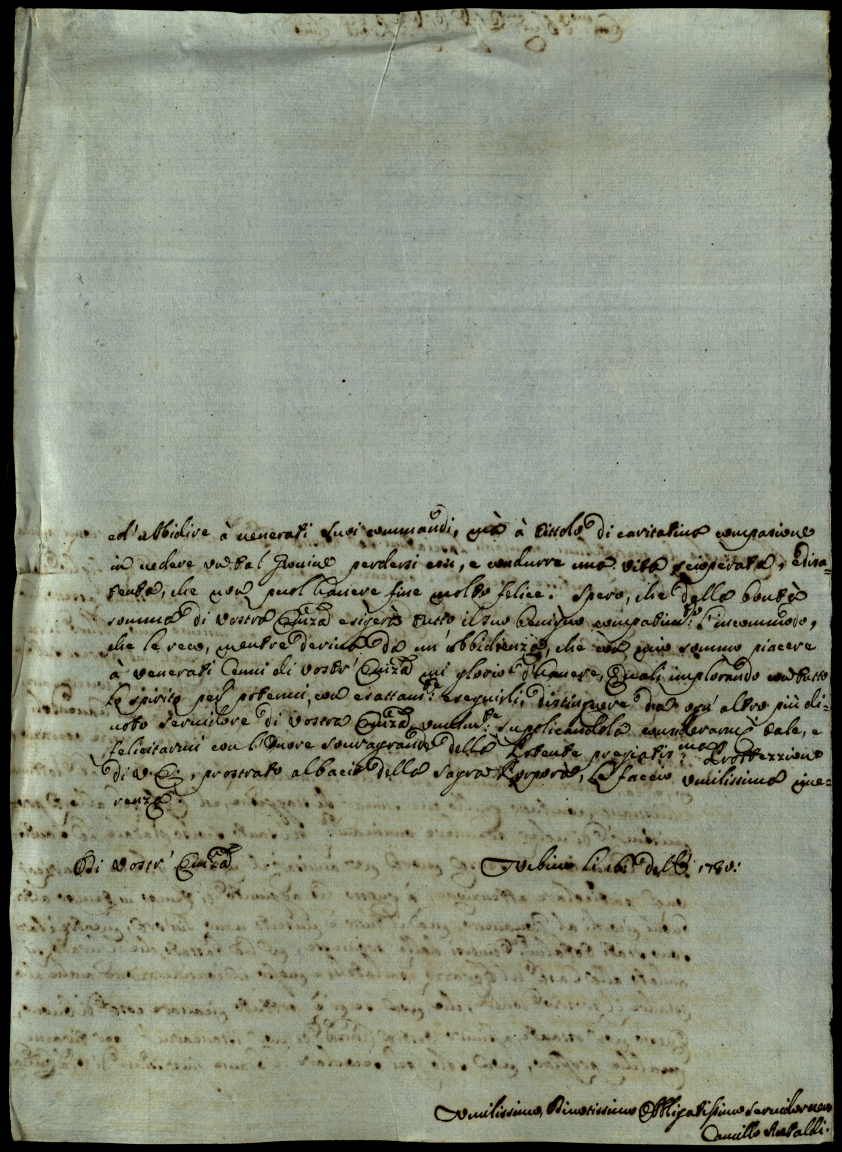 ed' obbidire à venerati suoi commandi, già à tittolo di caritativa compasione
in vedere un tal Giovine perdersi così, e condurre una vita scioperata, e disa-
tenta, che non puol havere fine molto felice: Spero, che dalla bontà
somma di Vostra Eminza esigerà tutto il suo benigno compatimto l'incommodo,
che le reco, mentre deriva da un' obbidienza, che con mio sommo piacere
à venerati Cenni di Vostr' Eminza mi glorio d'havere, quali implorando con tutto
lo spirito per potermi, con esattamte eseguirli, distinguere da ogn' altro più di-
voto servidore di Vostra Eminza umilmte supplicandola considerarmi tale, e
felicitarmi con l'Onore sovragrande della Potente pregiatisma Prottezzione
di V. Em, prostrato al bacio della Sagra Porpora, le faccio umilissima rive-
renza.
Di Vostr' Eminza
Urbino li 1780:
Umilissimo, Divotissimo Obbligatissimo Servidore vero
Camillo